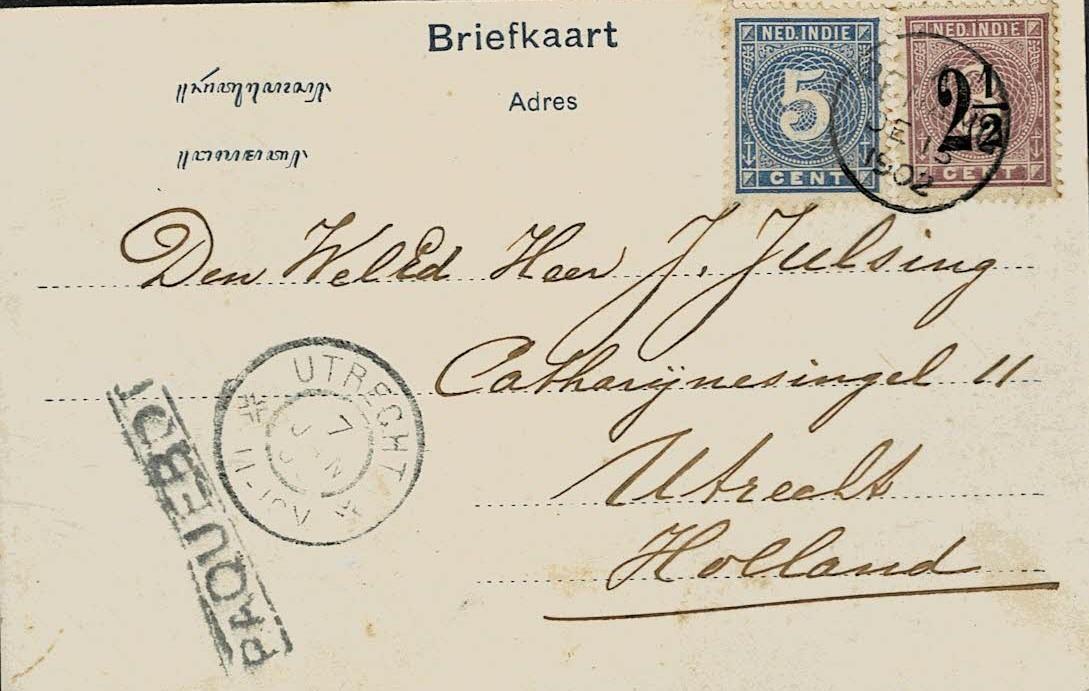 Briefkaart
Adres
NED. INDIE
5
CENT
NED. INDIE
2½
CENT
15
1902
Den WelEd Heer J. Julsing
Catharijnesingel 11
Utrecht
Holland
UTRECHT
7
PAQUEBOT